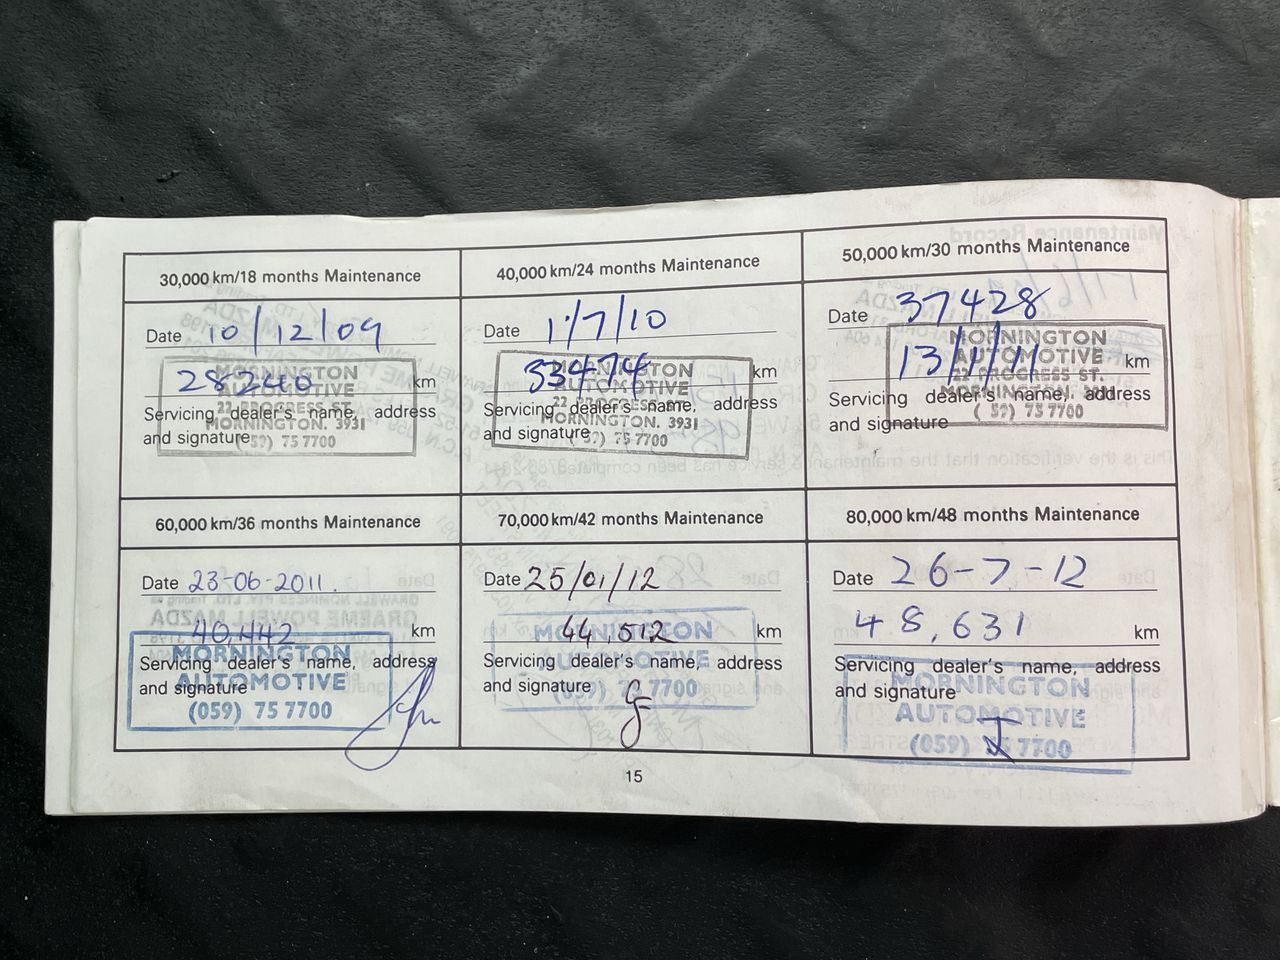 30,000 km/18 months Maintenance
Date 10/12/09
28240 km
MORNINGTON
AUTOMOTIVE
22 PROGRESS ST.
MORNINGTON. 3931
75 7700
Servicing dealer's name, address
and signature
40,000 km/24 months Maintenance
Date 1/7/10
33474 km
MORNINGTON
AUTOMOTIVE
22 PROGRESS ST.
MORNINGTON. 3931
75 7700
Servicing dealer's name, address
and signature
50,000 km/30 months Maintenance
Date 37428
13/1/11 km
MORNINGTON
AUTOMOTIVE
22 PROGRESS ST.
MORNINGTON
75 7700
Servicing dealer's name, address
and signature
60,000 km/36 months Maintenance
Date 23-06-2011.
40,442 km
MORNINGTON
AUTOMOTIVE
(059) 75 7700
Servicing dealer's name, address
and signature
70,000 km/42 months Maintenance
Date 25/01/12
44,512 km
MORNINGTON
AUTOMOTIVE
(059) 75 7700
Servicing dealer's name, address
and signature
80,000 km/48 months Maintenance
Date 26-7-12
48,631 km
Servicing dealer's name, address
and signature
MORNINGTON
AUTOMOTIVE
(059) 75 7700
15